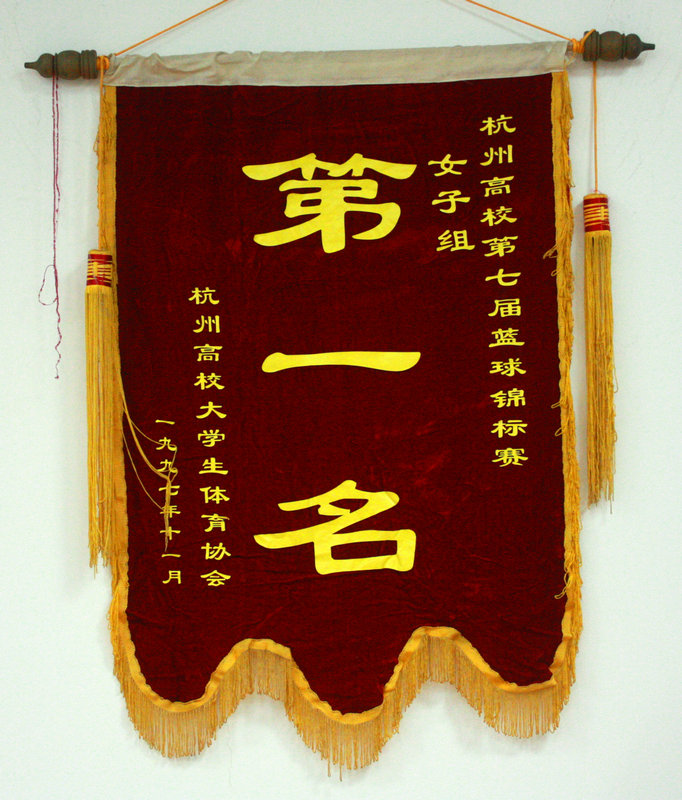 杭州高校第七届蓝球锦标赛
女子组
第一名
杭州高校大学生体育协会
一九九七年十一月